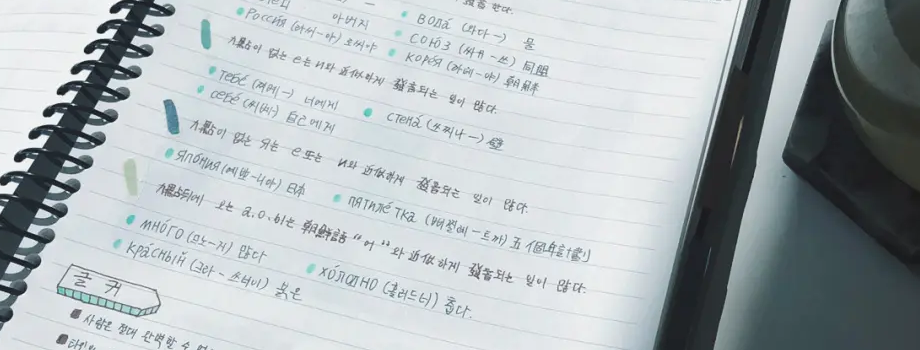 아버지
вода́ (와다-) 물
Росси́я (라씨-아) 로씨야
сою́з (싸유-쓰) 同盟
Коре́я (까레-야) 朝鮮
力點이 없는 е는 и와 近似하게 發音되는 일이 많다.
тебе́ (찌베-) 너에게
себе́ (씨베) 自己에게
стена́ (쓰찌나-) 壁
力點이 없는 я는 е 또는 и와 近似하게 發音되는 일이 많다.
Япо́ния (예뽀-니야) 日本
пятиле́тка 五個年計劃
力點뒤에 오는 а, о, ы는 朝鮮語 "어"와 近似하게 發音되는 일이 많다.
мно́го (므노-거) 많다
кра́сный (크라-쓰너이) 붉은
хо́лодно (홀러드너) 춥다.
글귀
사람은 절대 완벽할 수